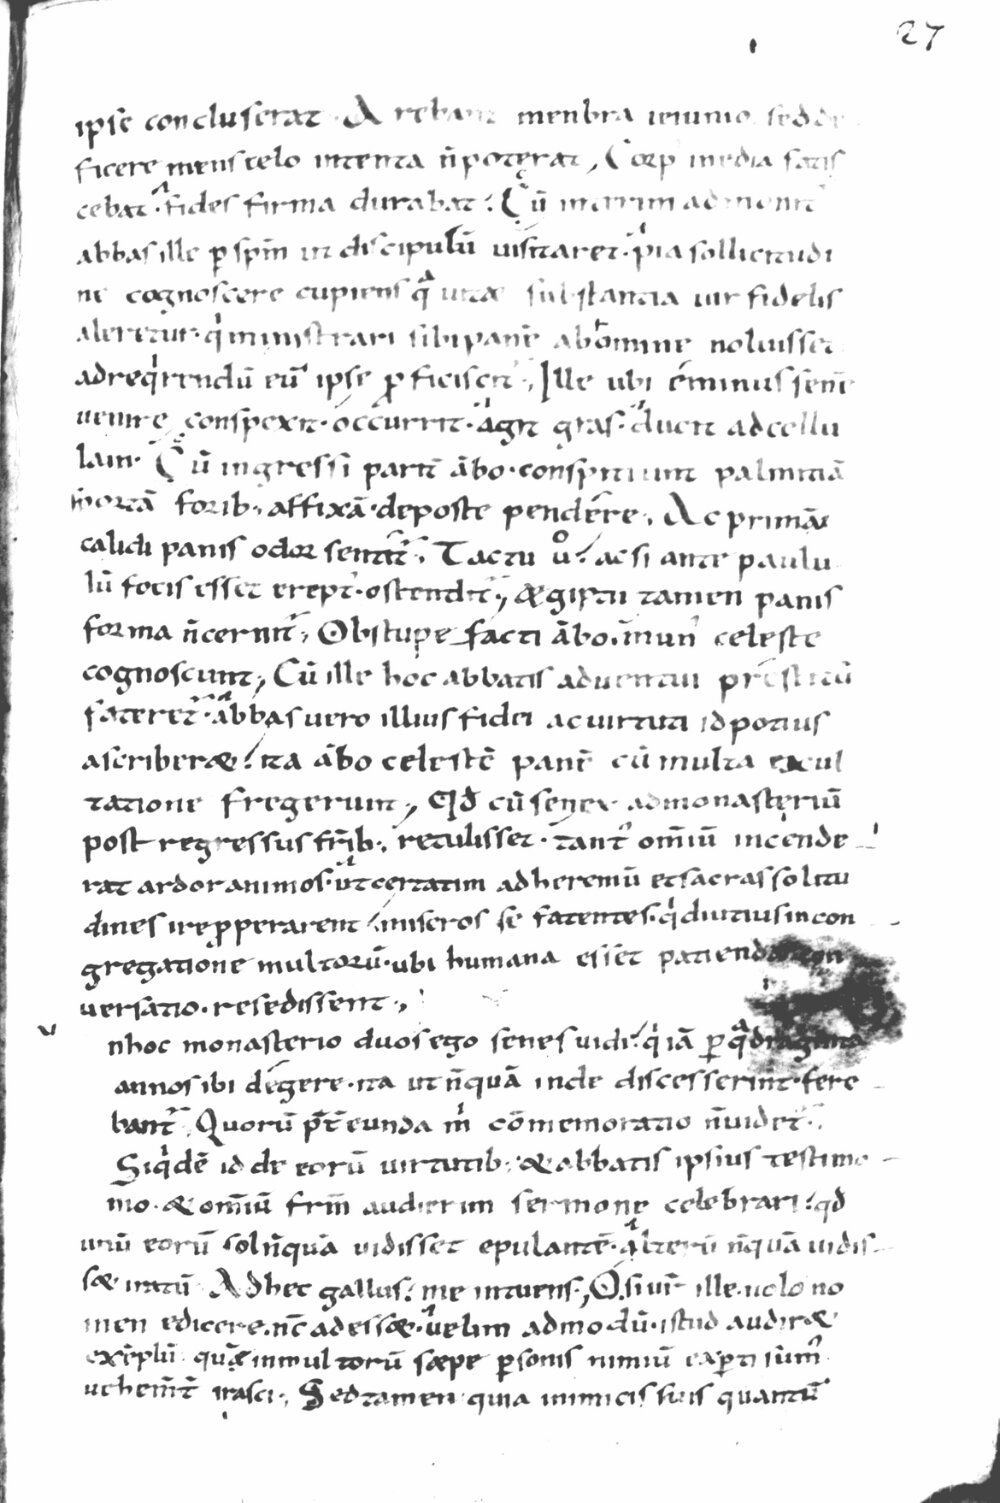 27
ipse concluserat. Arebant menbra ieiunio. sed de
ficere mens celo intenta n̄ poterat, Corp' inedia satis
cebat. fides firma durabat. Cū interim admonit'
abbas ille ꝑ spm̄ ut discipulū visitaret. pia sollicitudi
ne cognoscere cupiens qͣ uitae substantia uir fidelis
aleretur. qͥ ministrari sibi panē ab homine noluisset
ad reqͥrendū eū ipse ꝓficiscit'. Ille ubi eminus senē
uenire conspexit. occurrit. agit gr̄as. ducit ad cellu
lam. Cū ingressi parit' ābo. conspitiunt palmitiā
sportā forib; affixā. de poste pendere. Ac primā
calidi panis odor sentit'. Tactu ů. ac si ante paulu
lū focis esset erept'. ostendit', ægiptii tamen panis
forma n̄ cernit', Obstupefacti ābo. mun' celeste
cognoscunt, Cū ille hoc abbatis aduentui prestitū
fateret'. abbas vero illius fidei ac uirtuti id potius
ascriberæ. ita ābo celestē panē cū multa exul
tatione fregerunt, Qd̄ cū senex ad monasteriū
post regressus fr̄ib; retulisset. tant' om̄iū incende
rat ardor animos. ut certatim ad heremū et sacras solitu
dines ire ꝓperarent. miseros se fatentes. qͥ diutius in con
gregatione multorū. ubi humana esset patienda con
versatio. resedissent,
nhoc monasterio duos ego senes vidi. qͥ iā ꝑ qͣdraginta
annos ibi degere. ita ut nūquā inde discesserint. fere
bant'. Quorū p̄t̄eunda m̄ cōmemoratio n̄ videt'.
Siqͥdē id de eorū virtutib; & abbatis ipsius testimo
nio. & om̄iū fr̄m audierim sermone celebrari. qd
unū eorū sol nūquā vidisset epulantē. alterū nūquā vidis
sæ iratū. Ad hec gallus. me intuens, O si vr̄ ille. uolo no
men edicere. nc̄ adessæ. uelim admodū. istud audiræ
exēplū. quæ in multorū sæpe ꝑsonis nimiū exꝑti sum'
uehem̄t irasci. Sed tamen quia inimicis suis quantū